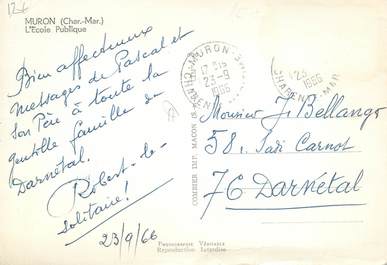 12€
MURON (Char.-Mar.)
L'Ecole Publique
Bien affectueux
messages de Pascal et
son Père à toute la
gentille famille de
Darnétal.
Robert-le-
solitaire!
23/9/66
MURON
17 H 15
23-9
1966
CHARENTE-MAR
23
1966
COMBIER IMP. MACON
Monsieur J. Bellanger
58, Sadi Carnot
76 Darnétal
Reproduction Interdite